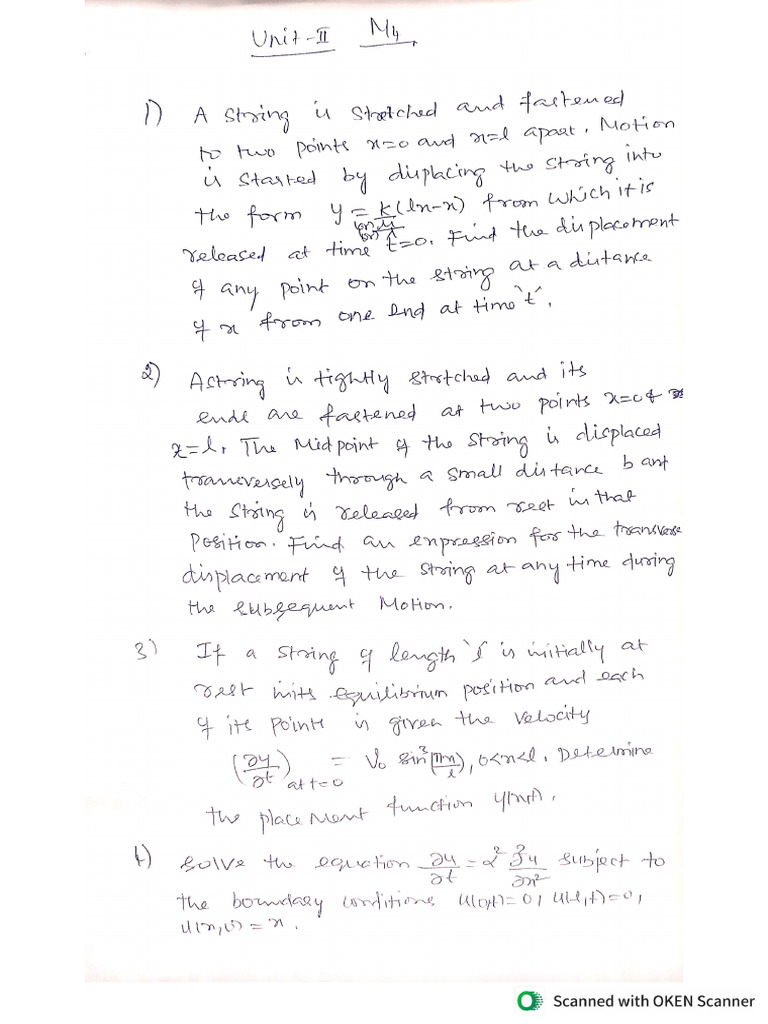 Unit-II M4
1) A string is stretched and fastened
to two points x=0 and x=l apart. Motion
is started by displacing the string into
the form y = k(lx-x) from which it is
released at time t=0. Find the displacement
of any point on the string at a distance
of x from one end at time 't'.
2) A string is tightly stretched and its
ends are fastened at two points x=0 &
x=l. The Midpoint of the string is displaced
transversely through a small distance b ant
the string is released from rest in that
position. Find an expression for the transverse
displacement of the string at any time during
the subsequent Motion.
3) If a string of length 'l' is initially at
rest in its equilibrium position and each
of its points is given the velocity
(∂y/∂t) at t=0 = V₀ sin³(πx/l), 0<x<l. Determine
the placement function y(x,t).
4) solve the equation ∂u/∂t = α² ∂²u/∂x² subject to
the boundary conditions u(0,t)=0, u(l,t)=0,
u(x,0)=x.
Scanned with OKEN Scanner